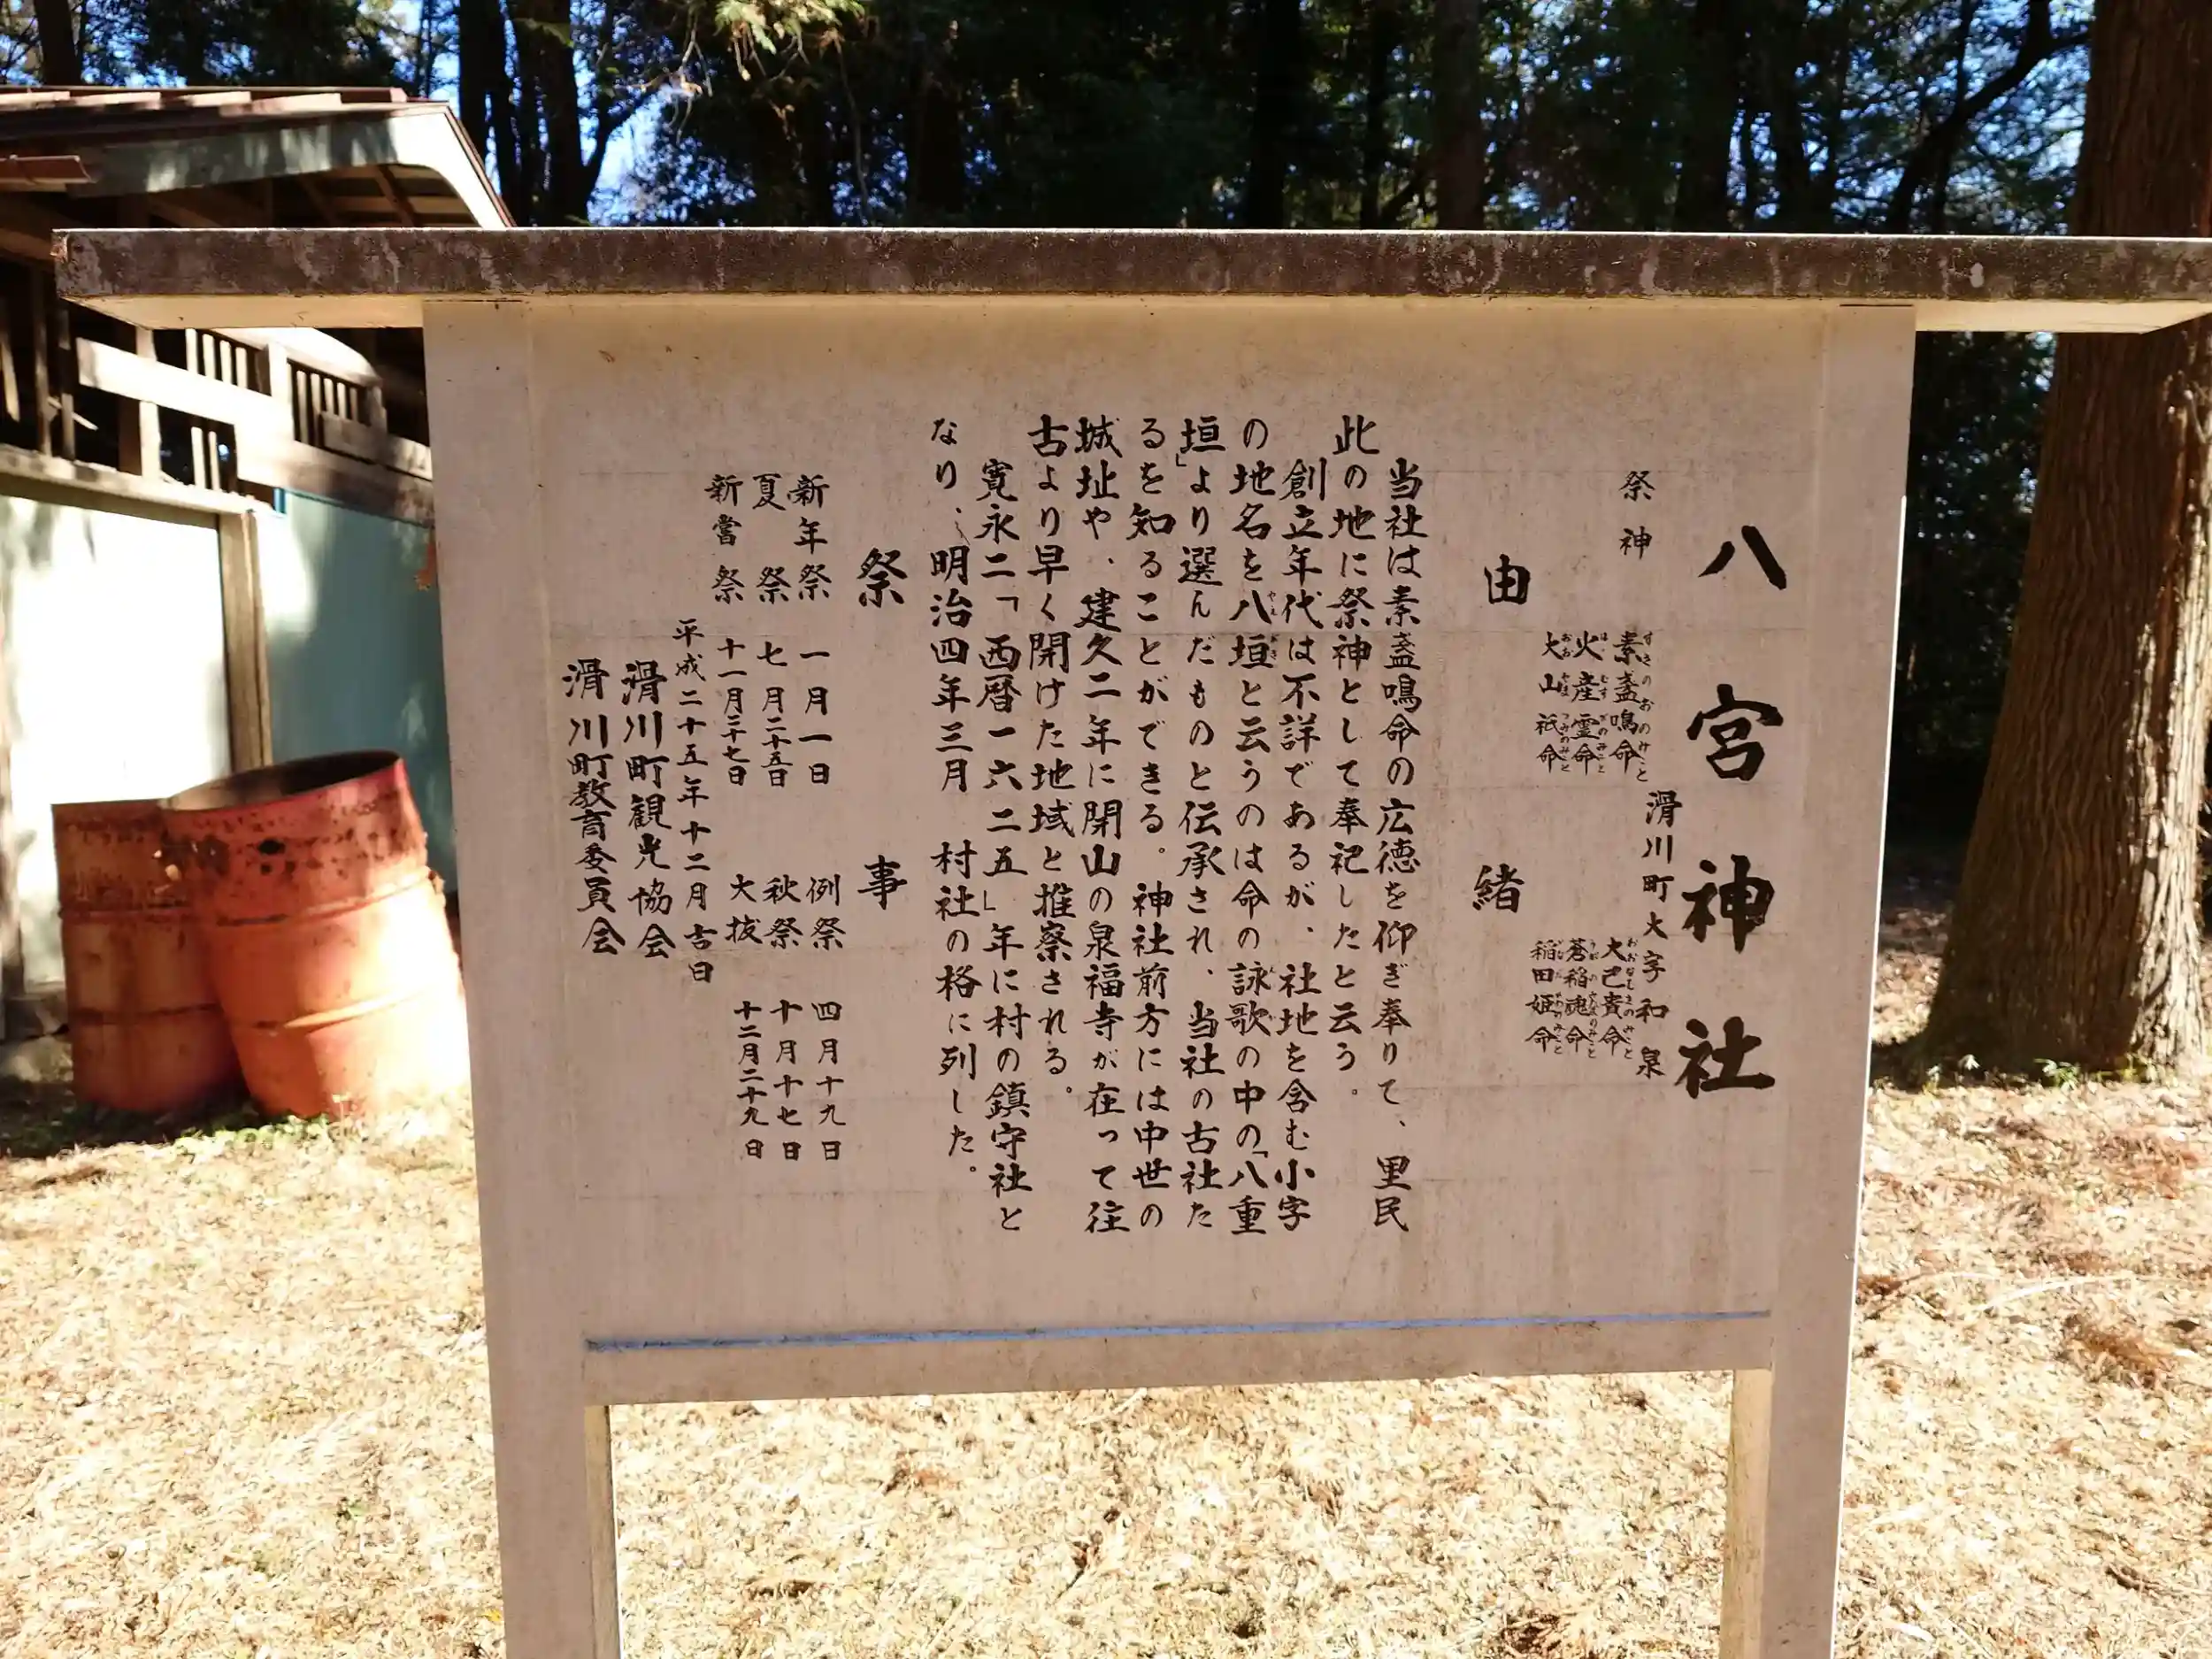 八宮神社
滑川町大字和泉
祭神
素盞鳴命 大己貴命
火産霊命 蒼稲魂命
大山祇命 稲田姫命
由緒
当社は素盞鳴命の広徳を仰ぎ奉りて、里民
此の地に祭神として奉祀したと云う。
創立年代は不詳であるが、社地を含む小字
の地名を八垣と云うのは命の詠歌の中の「八重
垣」より選んだものと伝承され、当社の古社た
るを知ることができる。神社前方には中世の
城址や、建久二年に開山の泉福寺が在って往
古より早く開けた地域と推察される。
寛永二「西暦一六二五」年に村の鎮守社と
なり、明治四年三月 村社の格に列した。
祭事
新年祭 一月一日 例祭 四月十九日
夏祭 七月二十五日 秋祭 十月十七日
新嘗祭 十一月二十七日 大抜 十二月二十九日
平成二十五年十二月吉日
滑川町観光協会
滑川町教育委員会